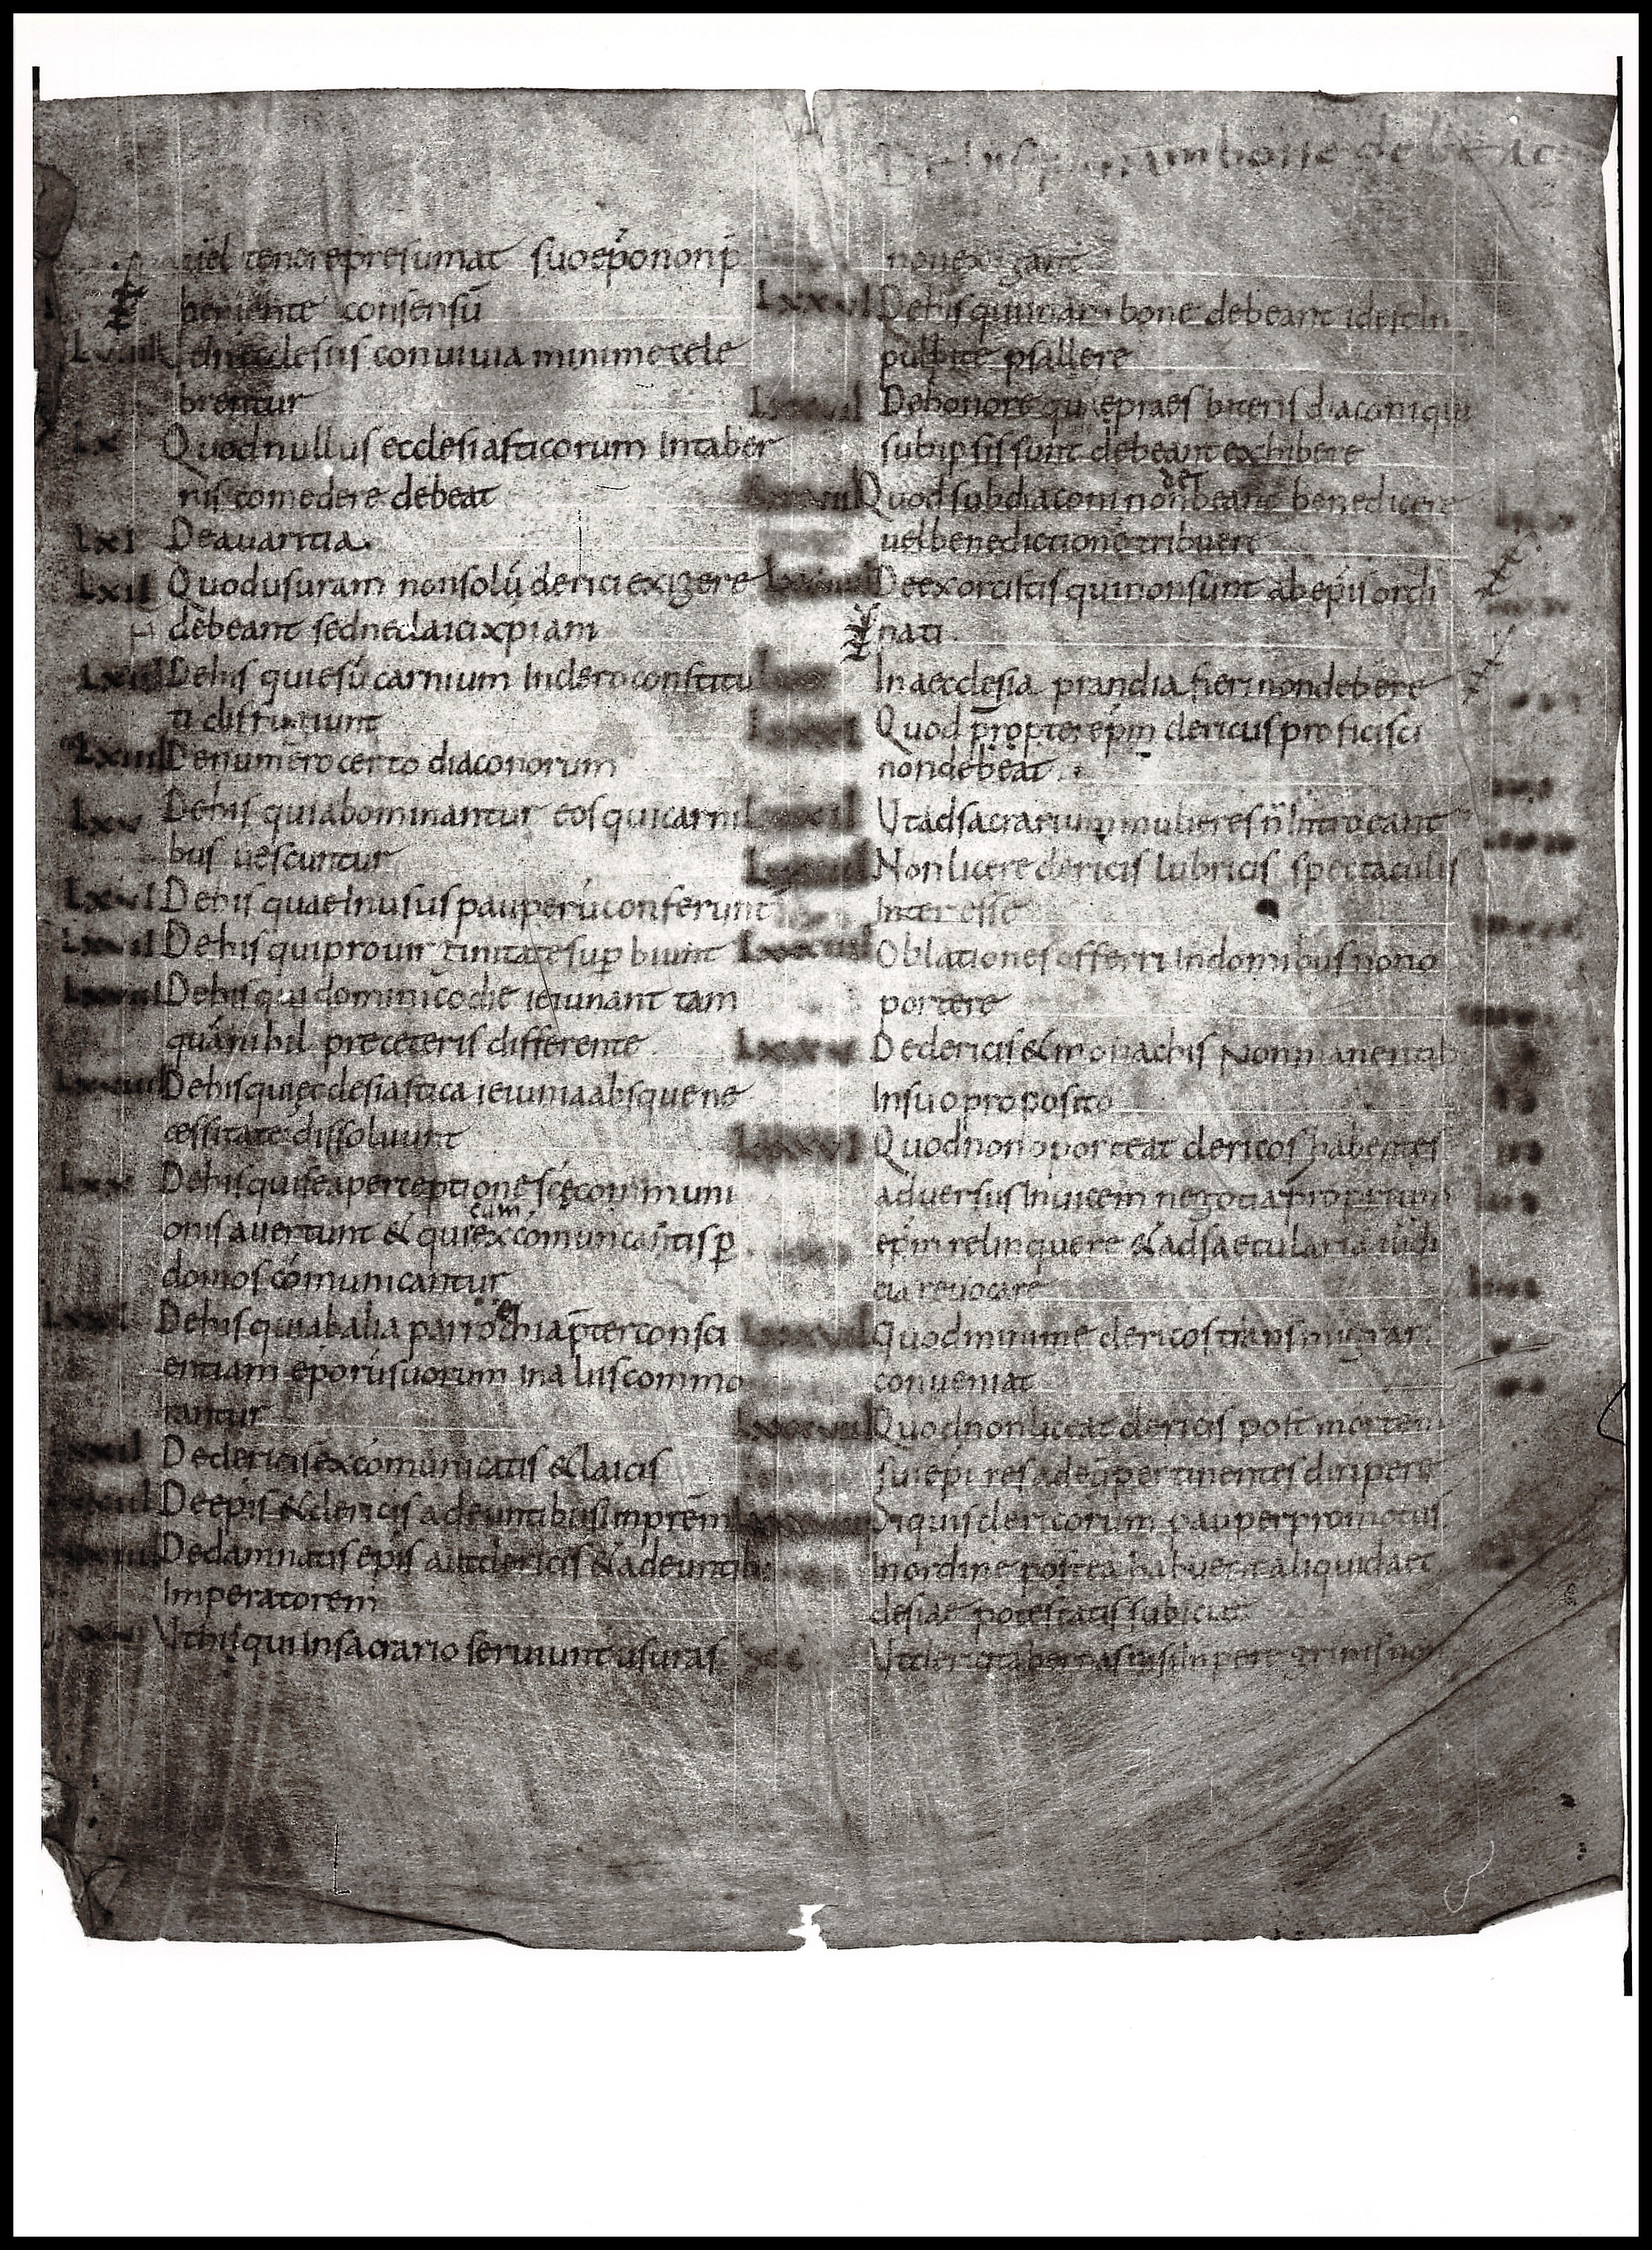 uel tenere presumat suo epo non p
beniente consensū
In ecclesiis conuiuia minime cele
brentur
Lx Quod nullus ecclesiasticorum In taber
nis comedere debeat
Lxi De auaritia.
Lxii Quod usuram non solū clerici exigere
debeant sed nec laici xpiani
Lxiii De his qui esū carnium In clero constitu
ti
Lxiiii De numero certo diaconorum
Lxv De his qui abominantur eos qui carni
bus uescuntur
Lxvi De his quae In usus pauperū conferunt
Lxvii De his qui pro uirginitate sup biunt
Lxviii De his qui dominico die ieiunant tam
quā nihil pre ceteris differente
Lxviiii De his qui ecclesiastica ieiunia absque ne
cessitate dissoluunt
Lxx De his qui se a perceptione scę communi
onis auertunt & qui cum excōmunicatis p
domos cōmunicantur
Lxxi De his qui ab alia parrochia pter consci
entiam eporū suorum In aliis commo
rantur
Lxxii De clericis excōmunicatis & laicis
Lxxiii De epis & clericis adeuntibus Imprēm
Lxxiiii De damnatis epis aut clericis & adeuntib;
Imperatorem
Lxxv Ut hi qui In sacrario seruiunt usuras
non exigant
Lxxvi De his qui in ambone debeant id est In
pulpite psallere
Lxxvii De honore quę praesbiteris diaconi qui
sub ipsis sunt debeant exhibere
Lxxviii Quod subdiaconi non debeant benedicere
uel benedictionē tribuere
Lxxviiii De exorcistis qui non sunt ab epis ordi
nati
Lxxx In aecclesia prandia fieri non debere
Lxxxi Quod propter epm clericus proficisci
non debeat
Lxxxii Ut ad sacrarium mulieres n̄ Introeant
Lxxxiii Non licere clericis lubricis spectaculis
Interesse
Lxxxiiii Oblationes offerri In domibus non o
portere
Lxxxv De clericis & monachis Non manentib
In suo proposito
Lxxxvi Quod non oporteat clericos habentes
aduersus Inuicem negotia proprium
epm relinquere & ad saecularia iudi
cia reuocare
Lxxxvii Quod minime clericos transmigrari
conueniat
Lxxxviii Quod non liceat clericis post mortem
sui epi res ad eū pertinentes diripere
Si quis clericorum pauper promotus
In ordine postea habuerit aliquid aec
clesiae potestatis subiciat
xc Ut clerici tabernas nisi In peregrinis non